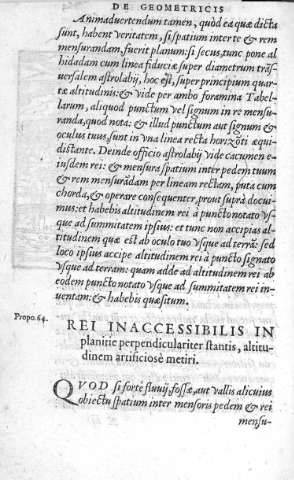 DE GEOMETRICIS
Animaduertendum tamen, quòd ea quæ dicta
sunt, habent veritatem, si spatium inter te & rem
mensurandam, fuerit planum: si secus, tunc pone al
hidadam cum linea fiduciæ super diametrum trãs
uersalem astrolabij, hoc est, super principium quar
tæ altitudinis: & vide per ambo foramina Tabel-
larum, aliquod punctum vel signum in re mensu-
randa, quod nota: & illud punctum aut signum &
oculus tuus, sunt in vna linea recta horizõti æqui-
distante. Deinde officio astrolabij vide cacumen e-
iusdem rei: & mensura spatium inter pedem tuum
& rem mensurãdam per lineam rectam, puta cum
chorda, & operare consequenter, prout suprà docui-
mus: et habebis altitudinem rei à pũcto notato vs-
que ad summitatem ipsius: et tunc non accipias al-
titudinem quæ est ab oculo tuo vsque ad terrã: sed
loco ipsius accipe altitudinem rei à pũcto signato
vsque ad terram: quam adde ad altitudinem rei ab
eodem puncto notato vsque ad summitatem rei in-
uentam: & habebis quæsitum.
Propo. 64.
REI INACCESSIBILIS IN
planitie perpendiculariter stantis, altitu-
dinem artificiosè metiri.
QVOD si fortè fluuij, fossæ, aut vallis alicuius
obiectu spatium inter mensoris pedem & rei
mensu-